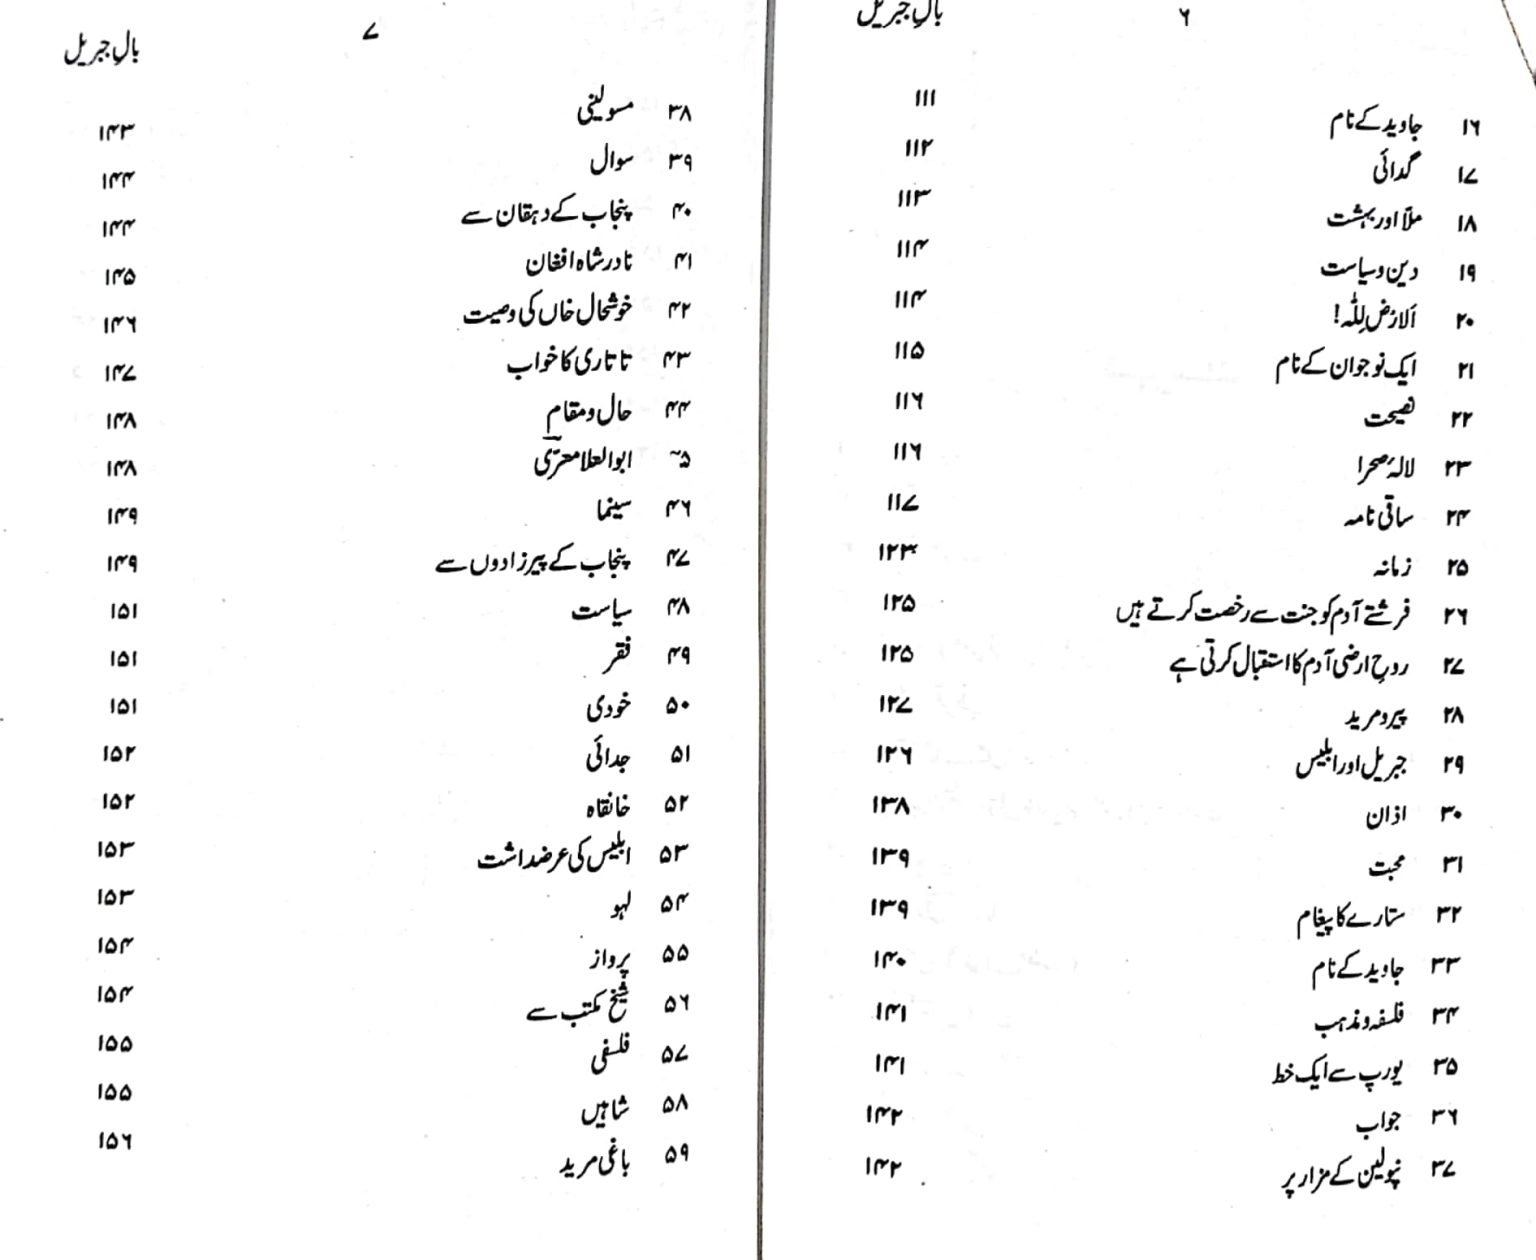 ۶ بالِ جبریل
۱۶ جاوید کے نام ۱۱۱
۱۷ گدائی ۱۱۲
۱۸ ملّا اور بہشت ۱۱۳
۱۹ دین و سیاست ۱۱۴
۲۰ اَلارْضُ لِلّٰہ! ۱۱۴
۲۱ ایک نوجوان کے نام ۱۱۵
۲۲ نصیحت ۱۱۶
۲۳ لالۂ صحرا ۱۱۶
۲۴ ساقی نامہ ۱۱۷
۲۵ زمانہ ۱۲۳
۲۶ فرشتے آدم کو جنت سے رخصت کرتے ہیں ۱۲۵
۲۷ روحِ ارضی آدم کا استقبال کرتی ہے ۱۲۵
۲۸ پیر و مرید ۱۲۷
۲۹ جبریل اور ابلیس ۱۲۶
۳۰ اذان ۱۳۸
۳۱ محبت ۱۳۹
۳۲ ستارے کا پیغام ۱۳۹
۳۳ جاوید کے نام ۱۴۰
۳۴ فلسفہ و مذہب ۱۴۱
۳۵ یورپ سے ایک خط ۱۴۱
۳۶ جواب ۱۴۲
۳۷ نپولین کے مزار پر ۱۴۲
۷ بالِ جبریل
۳۸ مسولینی ۱۴۳
۳۹ سوال ۱۴۴
۴۰ پنجاب کے دہقان سے ۱۴۴
۴۱ نادر شاہ افغان ۱۴۵
۴۲ خوشحال خاں کی وصیت ۱۴۶
۴۳ تاتاری کا خواب ۱۴۷
۴۴ حال و مقام ۱۴۸
۴۵ ابوالعلا معرّیؒ ۱۴۸
۴۶ سینما ۱۴۹
۴۷ پنجاب کے پیرزادوں سے ۱۴۹
۴۸ سیاست ۱۵۱
۴۹ فقر ۱۵۱
۵۰ خودی ۱۵۱
۵۱ جدائی ۱۵۲
۵۲ خانقاہ ۱۵۲
۵۳ ابلیس کی عرضداشت ۱۵۳
۵۴ لہو ۱۵۳
۵۵ پرواز ۱۵۴
۵۶ شیخ مکتب سے ۱۵۴
۵۷ فلسفی ۱۵۵
۵۸ شاہیں ۱۵۵
۵۹ باغی مرید ۱۵۶